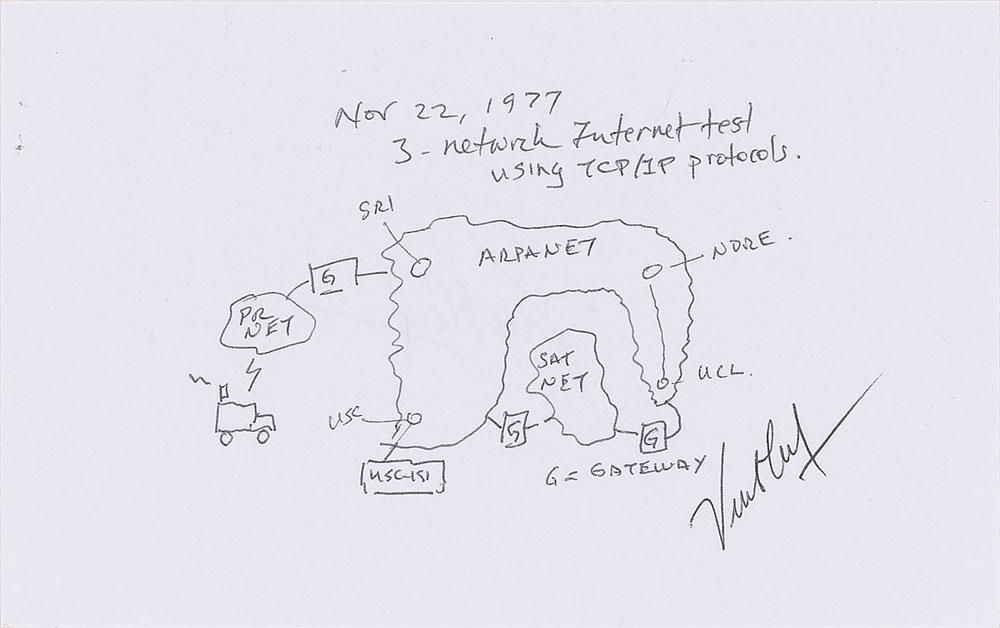 Nov 22, 1977
3-network Internet test
using TCP/IP protocols.
SRI
ARPANET
NDRE.
G
PR
NET
SAT
NET
UCL.
USC
G
G
USC-ISI
G = GATEWAY
Vint Cerf